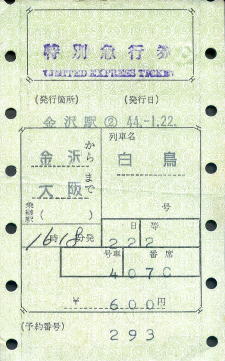 特別急行券
(LIMITED EXPRESS TICKET)
(発行箇所) (発行日)
金沢駅② 44.-1.22.
列車名
金沢から 白鳥
大阪まで
乗継駅( ) 号
16時18分発
日 等
22 2
号車 番 席
4 07C
¥ 600円
(予約番号) 293